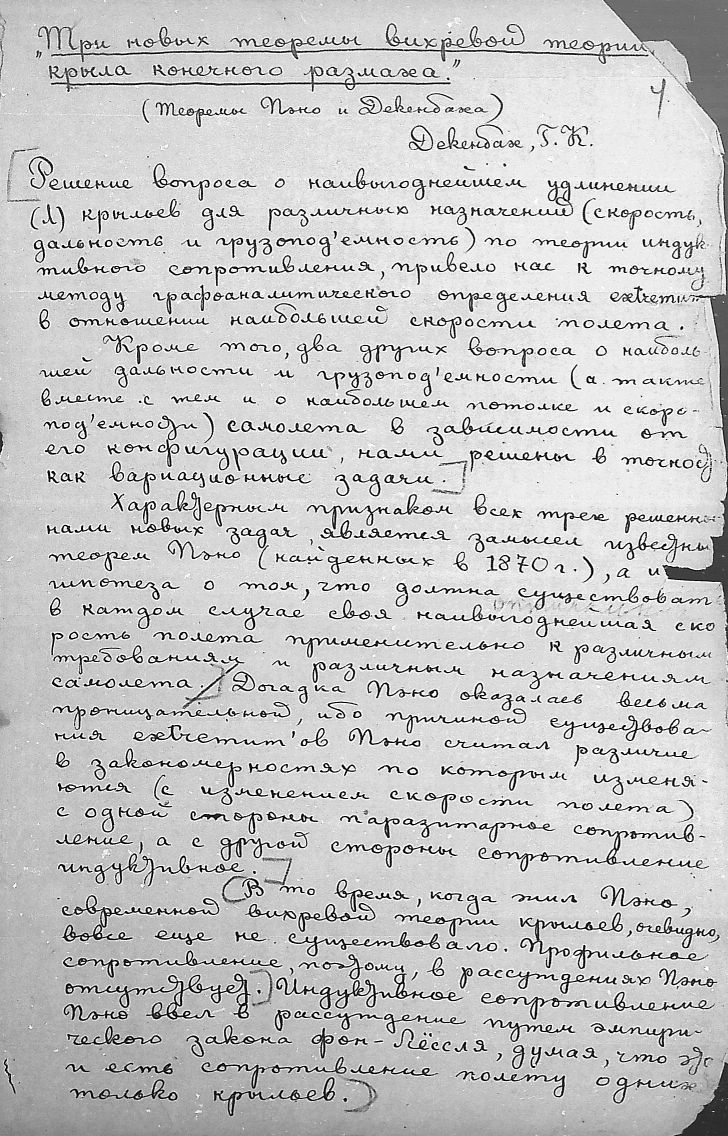 „Три новых теоремы вихревой теории
крыла конечного размаха."
4.
(Теоремы Пэно и Декенбаха)
Декенбах, Г.К.
[Решение вопроса о наивыгоднейшем удлинении
(Λ) крыльев для различных назначений (скорость,
дальность и грузопод'емность) по теории индук-
тивного сопротивления, привело нас к точному
методу графоаналитического определения extremum
в отношении наибольшей скорости полета.
Кроме того, два других вопроса о наиболь-
шей дальности и грузопод'емности (а также
вместе с тем и о наибольшем потолке и скоро-
под'емности) самолета в зависимости от
его конфигурации, нами решены в точности
как вариационные задачи.]
Характерным признаком всех трех решенных
нами новых задач, является замысел известных
теорем Пэно (найденных в 1870 г.), а и
гипотеза о том, что должна существоват
в каждом случае своя наивыгоднейшая ско
рость полета применительно к различным
требованиям и различным назначениям
самолета.] Догадка Пэно оказалась весьма
проницательной, ибо причиной существова-
ния extremum'ов Пэно считал различие
в закономерностях по которым изменя-
ются (с изменением скорости полета)
с одной стороны паразитарное сопротив-
ление, а с другой стороны сопротивление
индуктивное.]
(В то время, когда жил Пэно,
современной вихревой теории крыльев, очевидно,
вовсе еще не существовало. Профильное
сопротивление, поэтому, в рассуждениях Пэно
отсутствует.] Индуктивное сопротивление
Пэно ввел в рассуждение путем эмпири-
ческого закона фон-Лёссля, думая, что это
и есть сопротивление полету одних
только крыльев.)